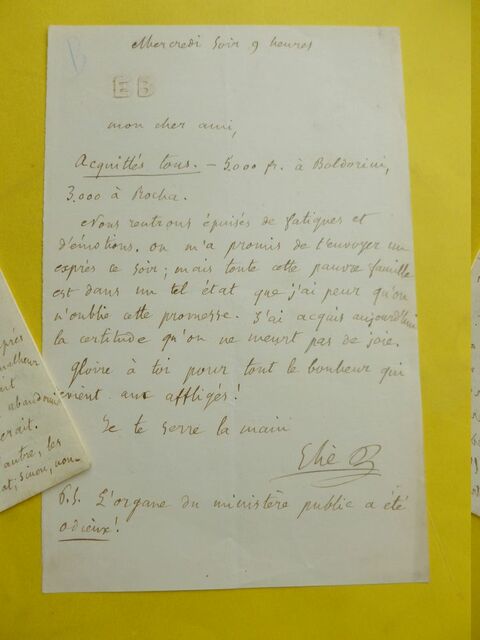 Mercredi soir 9 heures
B
EB
mon cher ami,
Acquittés tous. — 5.000 fr. à Baldorini,
3.000 à Rocha.
Nous rentrons épuisés de fatigues et
d'émotions. on m'a promis de t'envoyer un
exprès ce soir ; mais toute cette pauvre famille
est dans un tel état que j'ai peur qu'on
n'oublie cette promesse. J'ai acquis aujourd'hui
la certitude qu'on ne meurt pas de joie.
Gloire à toi pour tout le bonheur qui
revient aux affligés !
Je te serre la main
Elie B
P.S. L'organe du ministère public a été
odieux !
malheur
abandonn
erait.
autre, les
at; sinon, nou-